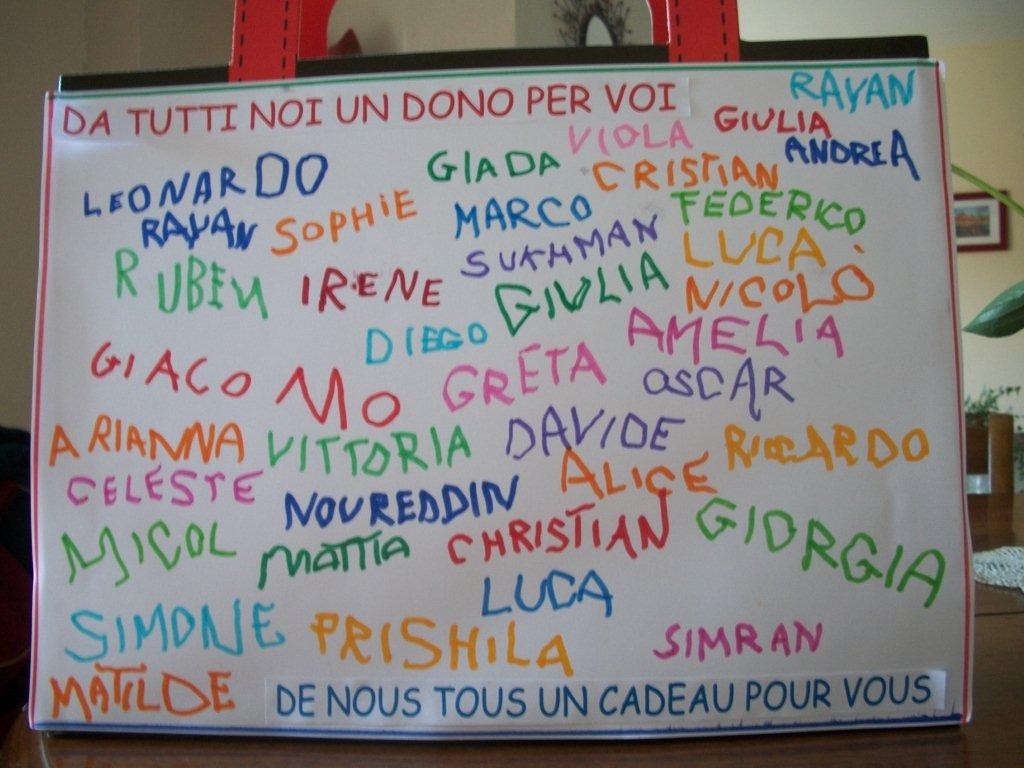 DA TUTTI NOI UN DONO PER VOI
RAYAN
VIOLA GIULIA
LEONARDO GIADA CRISTIAN ANDREA
RAYAN SOPHIE MARCO FEDERICO
RUBEN IRENE SUKHMAN LUCA
GIULIA NICOLÒ
DIEGO AMELIA
GIACOMO GRETA OSCAR
ARIANNA VITTORIA DAVIDE RICCARDO
CELESTE NOUREDDIN ALICE
MICOL MATTIA CHRISTIAN GIORGIA
LUCA
SIMONE PRISHILA SIMRAN
MATILDE
DE NOUS TOUS UN CADEAU POUR VOUS